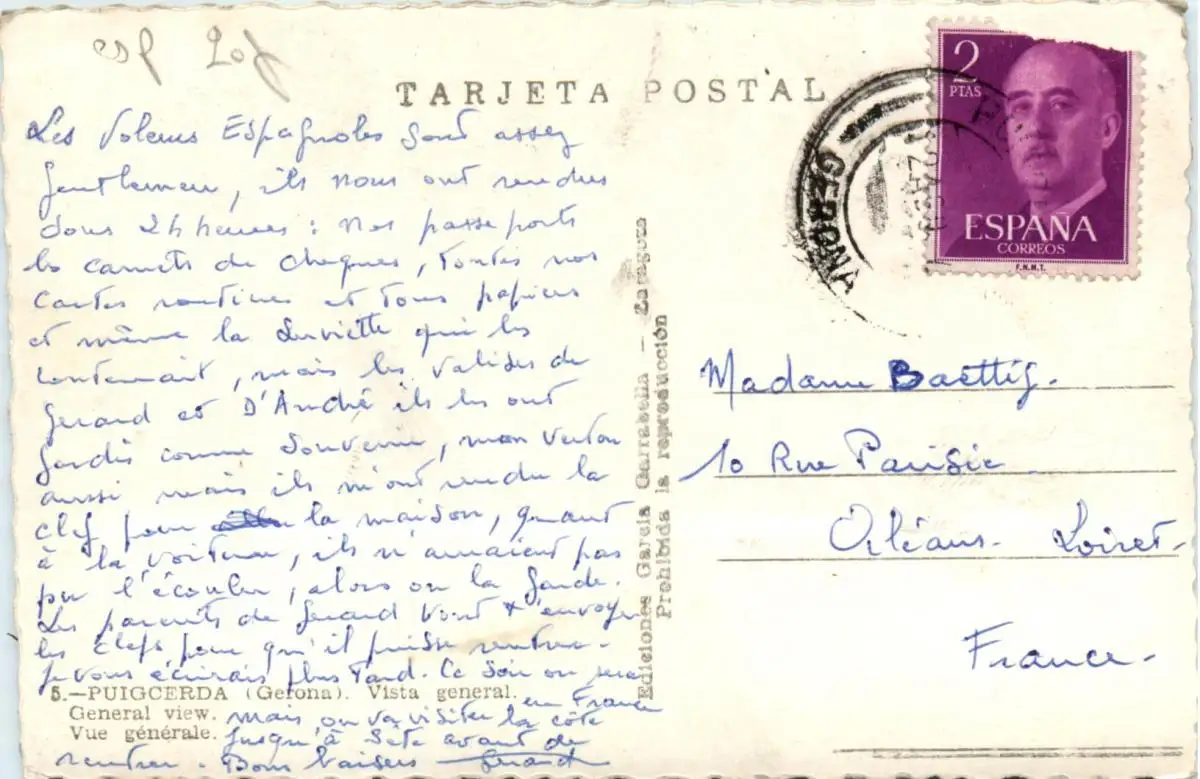 esp 20f
TARJETA POSTAL
2
PTAS
ESPAÑA
CORREOS
F.N.M.T.
GERONA
Les Voleurs Espagnoles sont assez
gentlemen, ils nous ont rendus
dans 24 heures : Nos passeports
les carnets de cheques, toutes nos
cartes routieres et tous papiers
et même la serviette qui les
contenait, mais les valises de
Gerard et D'André ils les ont
gardés comme souvenir, mon veston
aussi mais ils m'ont rendu la
clef pour la maison, quant
à la voiture, ils n'auraient pas
pu l'écouler, alors on la garde.
Les parents de Gerard vont t'envoyer
les clefs pour qu'il puisse rentrer.
je vous écrirais plus tard. Ce soir on sera
en France
mais on va visiter la côte
jusqu'à Sète avant de
rentrer Bons baisers Gerard
5.—PUIGCERDA (Gerona). Vista general.
General view.
Vue générale.
Ediciones García Garrabella — Zaragoza
Prohibida la reproducción
Madame Baettig.
10 Rue Parisie
Orléans. Loiret.
France.